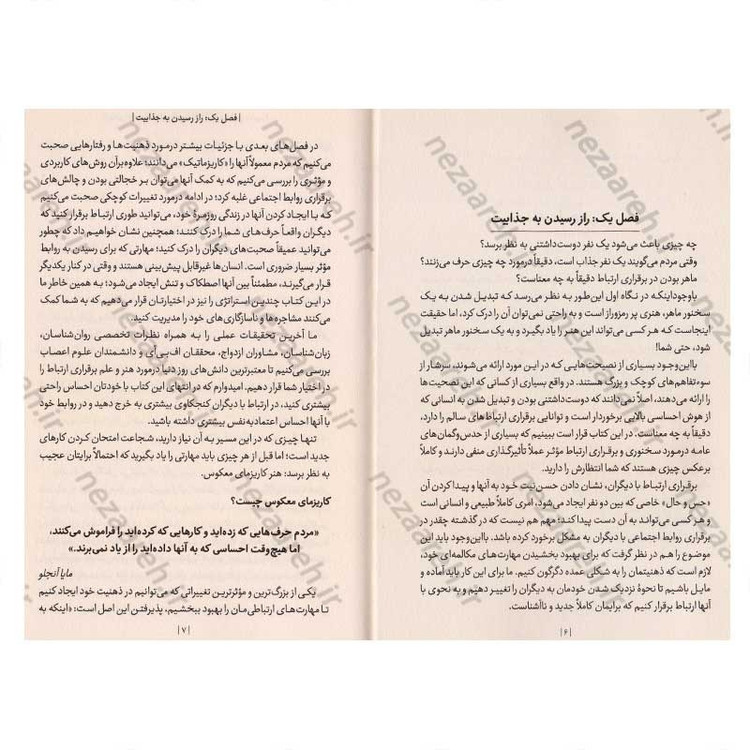 فصل یک: راز رسیدن به جذابیت
چه چیزی باعث می‌شود یک نفر دوست‌داشتنی به نظر برسد؟
وقتی مردم می‌گویند یک نفر جذاب است، دقیقاً درمورد چه چیزی حرف می‌زنند؟
ماهر بودن در برقراری ارتباط دقیقاً به چه معناست؟
باوجوداینکه در نگاه اول این‌طور به نظر می‌رسد که تبدیل شدن به یک
سخنور ماهر، هنری پر رمزوراز است و به راحتی نمی‌توان آن را درک کرد، اما حقیقت
اینجاست که هر کسی می‌تواند این هنر را یاد بگیرد و به یک سخنور ماهر تبدیل
شود، حتی شما!
بااین‌وجود بسیاری از نصیحت‌هایی که در این مورد ارائه می‌شوند، سرشار از
سوءتفاهم‌های کوچک و بزرگ هستند. در واقع بسیاری از کسانی که این نصیحت‌ها
را ارائه می‌دهند، اصلاً نمی‌دانند که دوست‌داشتنی بودن و تبدیل شدن به انسانی که
از هوش احساسی بالایی برخوردار است و توانایی برقراری ارتباط‌های سالم را دارد،
دقیقاً به چه معناست. در این کتاب قرار است ببینیم که بسیاری از حدس‌وگمان‌های
عامه درمورد سخنوری و برقراری ارتباط مؤثر عملاً تأثیرگذاری منفی دارند و کاملاً
برعکس چیزی هستند که شما انتظارش را دارید.
برقراری ارتباط با دیگران، نشان دادن حسن‌نیت خود به آنها و پیدا کردن آن
«حس و حال» خاصی که بین دو نفر ایجاد می‌شود، امری کاملاً طبیعی و انسانی است
و هر کسی می‌تواند به آن دست پیدا کند؛ مهم هم نیست که در گذشته چقدر در
برقراری روابط اجتماعی با دیگران به مشکل برخورد کرده باشد. بااین‌وجود باید این
موضوع را هم در نظر گرفت که برای بهبود بخشیدن مهارت‌های مکالمه‌ای خود،
لازم است که ذهنیتمان را به شکلی عمده دگرگون کنیم. ما برای این کار باید آماده و
مایل باشیم تا نحوهٔ نزدیک شدن خودمان به دیگران را تغییر دهیم و به نحوی با
آنها ارتباط برقرار کنیم که برایمان کاملاً جدید و ناآشناست.
|۶|
| فصل یک: راز رسیدن به جذابیت |
در فصل‌های بعدی با جزئیات بیشتر درمورد ذهنیت‌ها و رفتارهایی صحبت
می‌کنیم که مردم معمولاً آنها را «کاریزماتیک» می‌دانند؛ علاوه‌برآن روش‌های کاربردی
و مؤثری را بررسی می‌کنیم که به کمک آنها می‌توان بر خجالتی بودن و چالش‌های
برقراری روابط اجتماعی غلبه کرد؛ در ادامه درمورد تغییرات کوچکی صحبت می‌کنیم
که با ایجاد کردن آنها در زندگی روزمرهٔ خود، می‌توانید طوری ارتباط برقرار کنید که
دیگران واقعاً حرف‌های شما را درک کنند؛ همچنین نشان خواهیم داد که چطور
می‌توانید عمیقاً صحبت‌های دیگران را درک کنید؛ مهارتی که برای رسیدن به روابط
مؤثر بسیار ضروری است. انسان‌ها غیرقابل پیش‌بینی هستند و وقتی در کنار یکدیگر
قرار می‌گیرند، مطمئناً بین آنها اصطکاک و تنش ایجاد می‌شود؛ به همین خاطر ما
در این کتاب چندین استراتژی را نیز در اختیارتان قرار می‌دهیم که به شما کمک
می‌کنند مشاجره‌ها و ناسازگاری‌های خود را مدیریت کنید.
ما آخرین تحقیقات عملی را به همراه نظرات تخصصی روان‌شناسان،
زبان‌شناسان، مشاوران ازدواج، محققان اف‌بی‌آی و دانشمندان علوم اعصاب
بررسی می‌کنیم تا معتبرترین دانش‌های روز دنیا درمورد هنر و علم برقراری ارتباط را
در اختیار شما قرار دهیم. امیدوارم که در انتهای این کتاب با خودتان احساس راحتی
بیشتری کنید، در ارتباط با دیگران کنجکاوی بیشتری به خرج دهید و در روابط خود
با آنها احساس اعتمادبه‌نفس بیشتری داشته باشید.
تنها چیزی که در این مسیر به آن نیاز دارید، شجاعت امتحان کردن کارهای
جدید است؛ اما قبل از هر چیزی باید مهارتی را یاد بگیرید که احتمالاً برایتان عجیب
به نظر برسد: هنر کاریزمای معکوس.
کاریزمای معکوس چیست؟
«مردم حرف‌هایی که زده‌اید و کارهایی که کرده‌اید را فراموش می‌کنند،
اما هیچ‌وقت احساسی که به آنها داده‌اید را از یاد نمی‌برند.»
مایا آنجلو
یکی از بزرگ‌ترین و مؤثرترین تغییراتی که می‌توانیم در ذهنیت خود ایجاد کنیم
تا مهارت‌های ارتباطی‌مان را بهبود ببخشیم، پذیرفتن این اصل است: «اینکه به
|۷|
nezaareh.ir